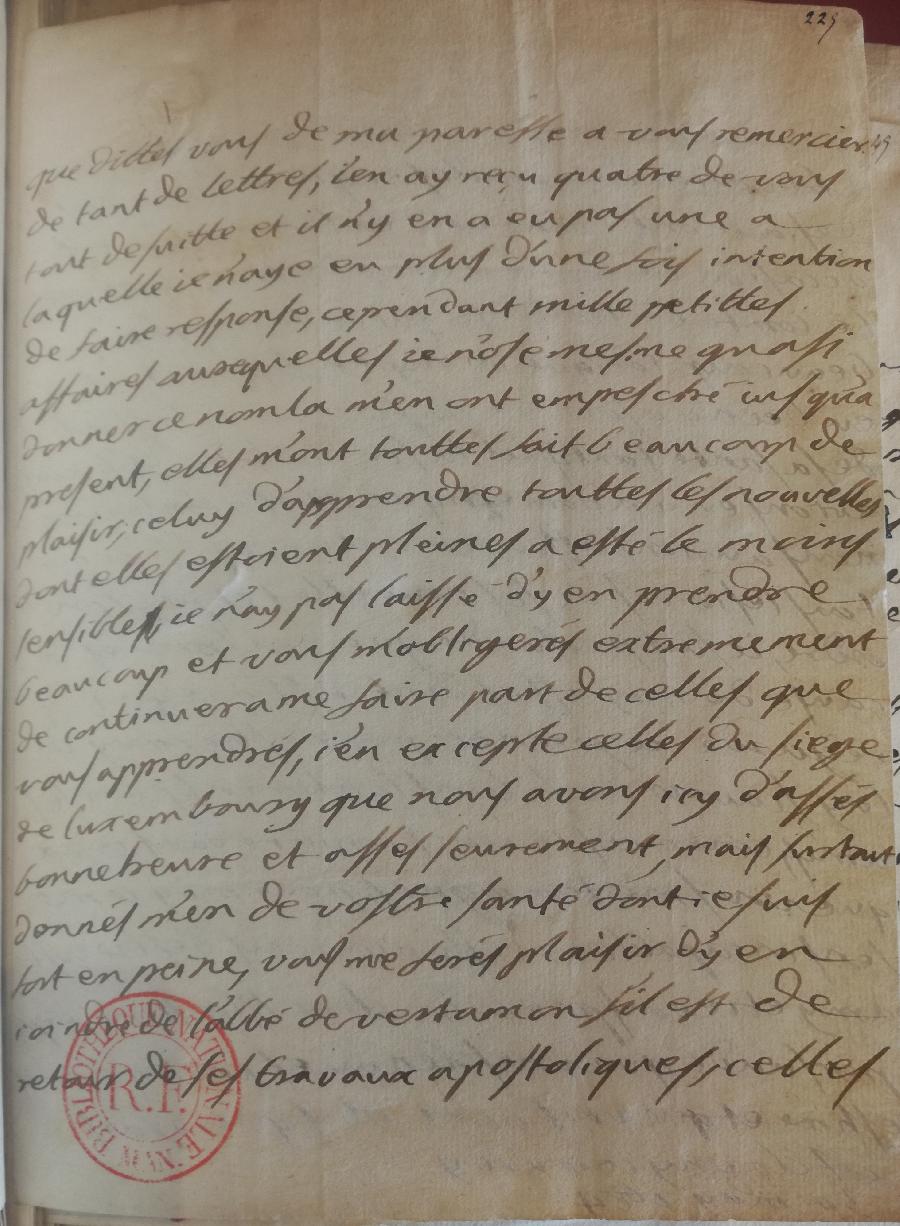 225
que dittes vous de ma paresse a vous remercier
de tant de lettres, i'en ay reçu quatre de vous
tout de suitte et il n'y en a eu pas une a
laquelle ie n'aye eu plus d'une fois intention
de faire response, cependant mille petittes
affaires ausquelles ie n'ose mesme quasi
donner ce nom la m'en ont empesché iusqu'a
present, elles m'ont touttes fait beaucoup de
plaisir, celuy d'apprendre touttes les nouvelles
dont elles estoient pleines a esté le moins
sensible, ie n'ay pas laissé d'y en prendre
beaucoup et vous m'obligerés extremement
de continuer a me faire part de celles que
vous apprendrés, i'en excepte celles du siege
de luxembourg que nous avons icy d'assés
bonne heure et assés seurement, mais surtout
donnés m'en de vostre santé dont ie suis
fort en peine, vous me ferés plaisir d'y en
ioindre de l'abbé de vertamon s'il est de
retour de ses travaux apostoliques, celles
BIBLIOTHEQUE NATIONALE MSS
R.F.